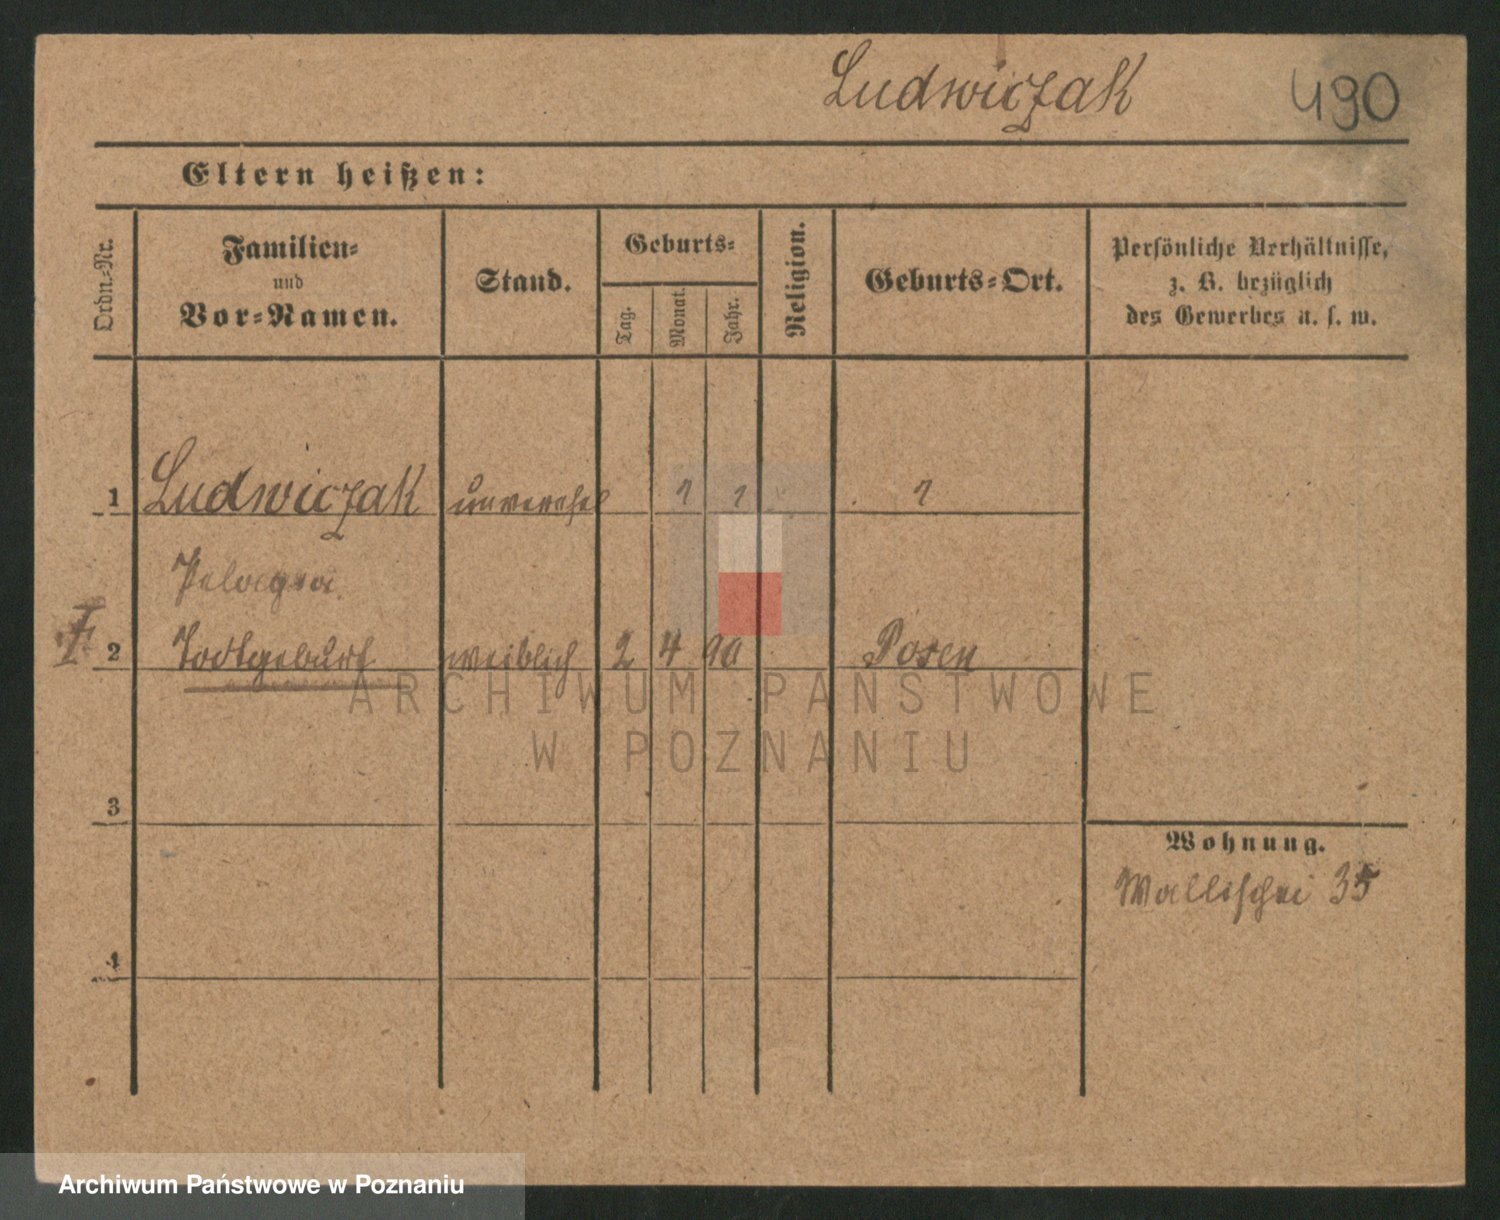 Ludwiczak 490
Eltern heißen:
Ordn.-Nr.
Familien-
und
Vor-Namen.
Stand.
Geburts-
Tag.
Monat.
Jahr.
Religion.
Geburts-Ort.
Persönliche Verhältnisse,
z. B. bezüglich
des Gewerbes u. s. w.
1 Ludwiczak unverehel ? ? ?
Pelagia
2 Todtgeburt weiblich 2 4 10 Posen
3
4
Wohnung.
Wallischei 35
ARCHIWUM PAŃSTWOWE
W POZNANIU
Archiwum Państwowe w Poznaniu